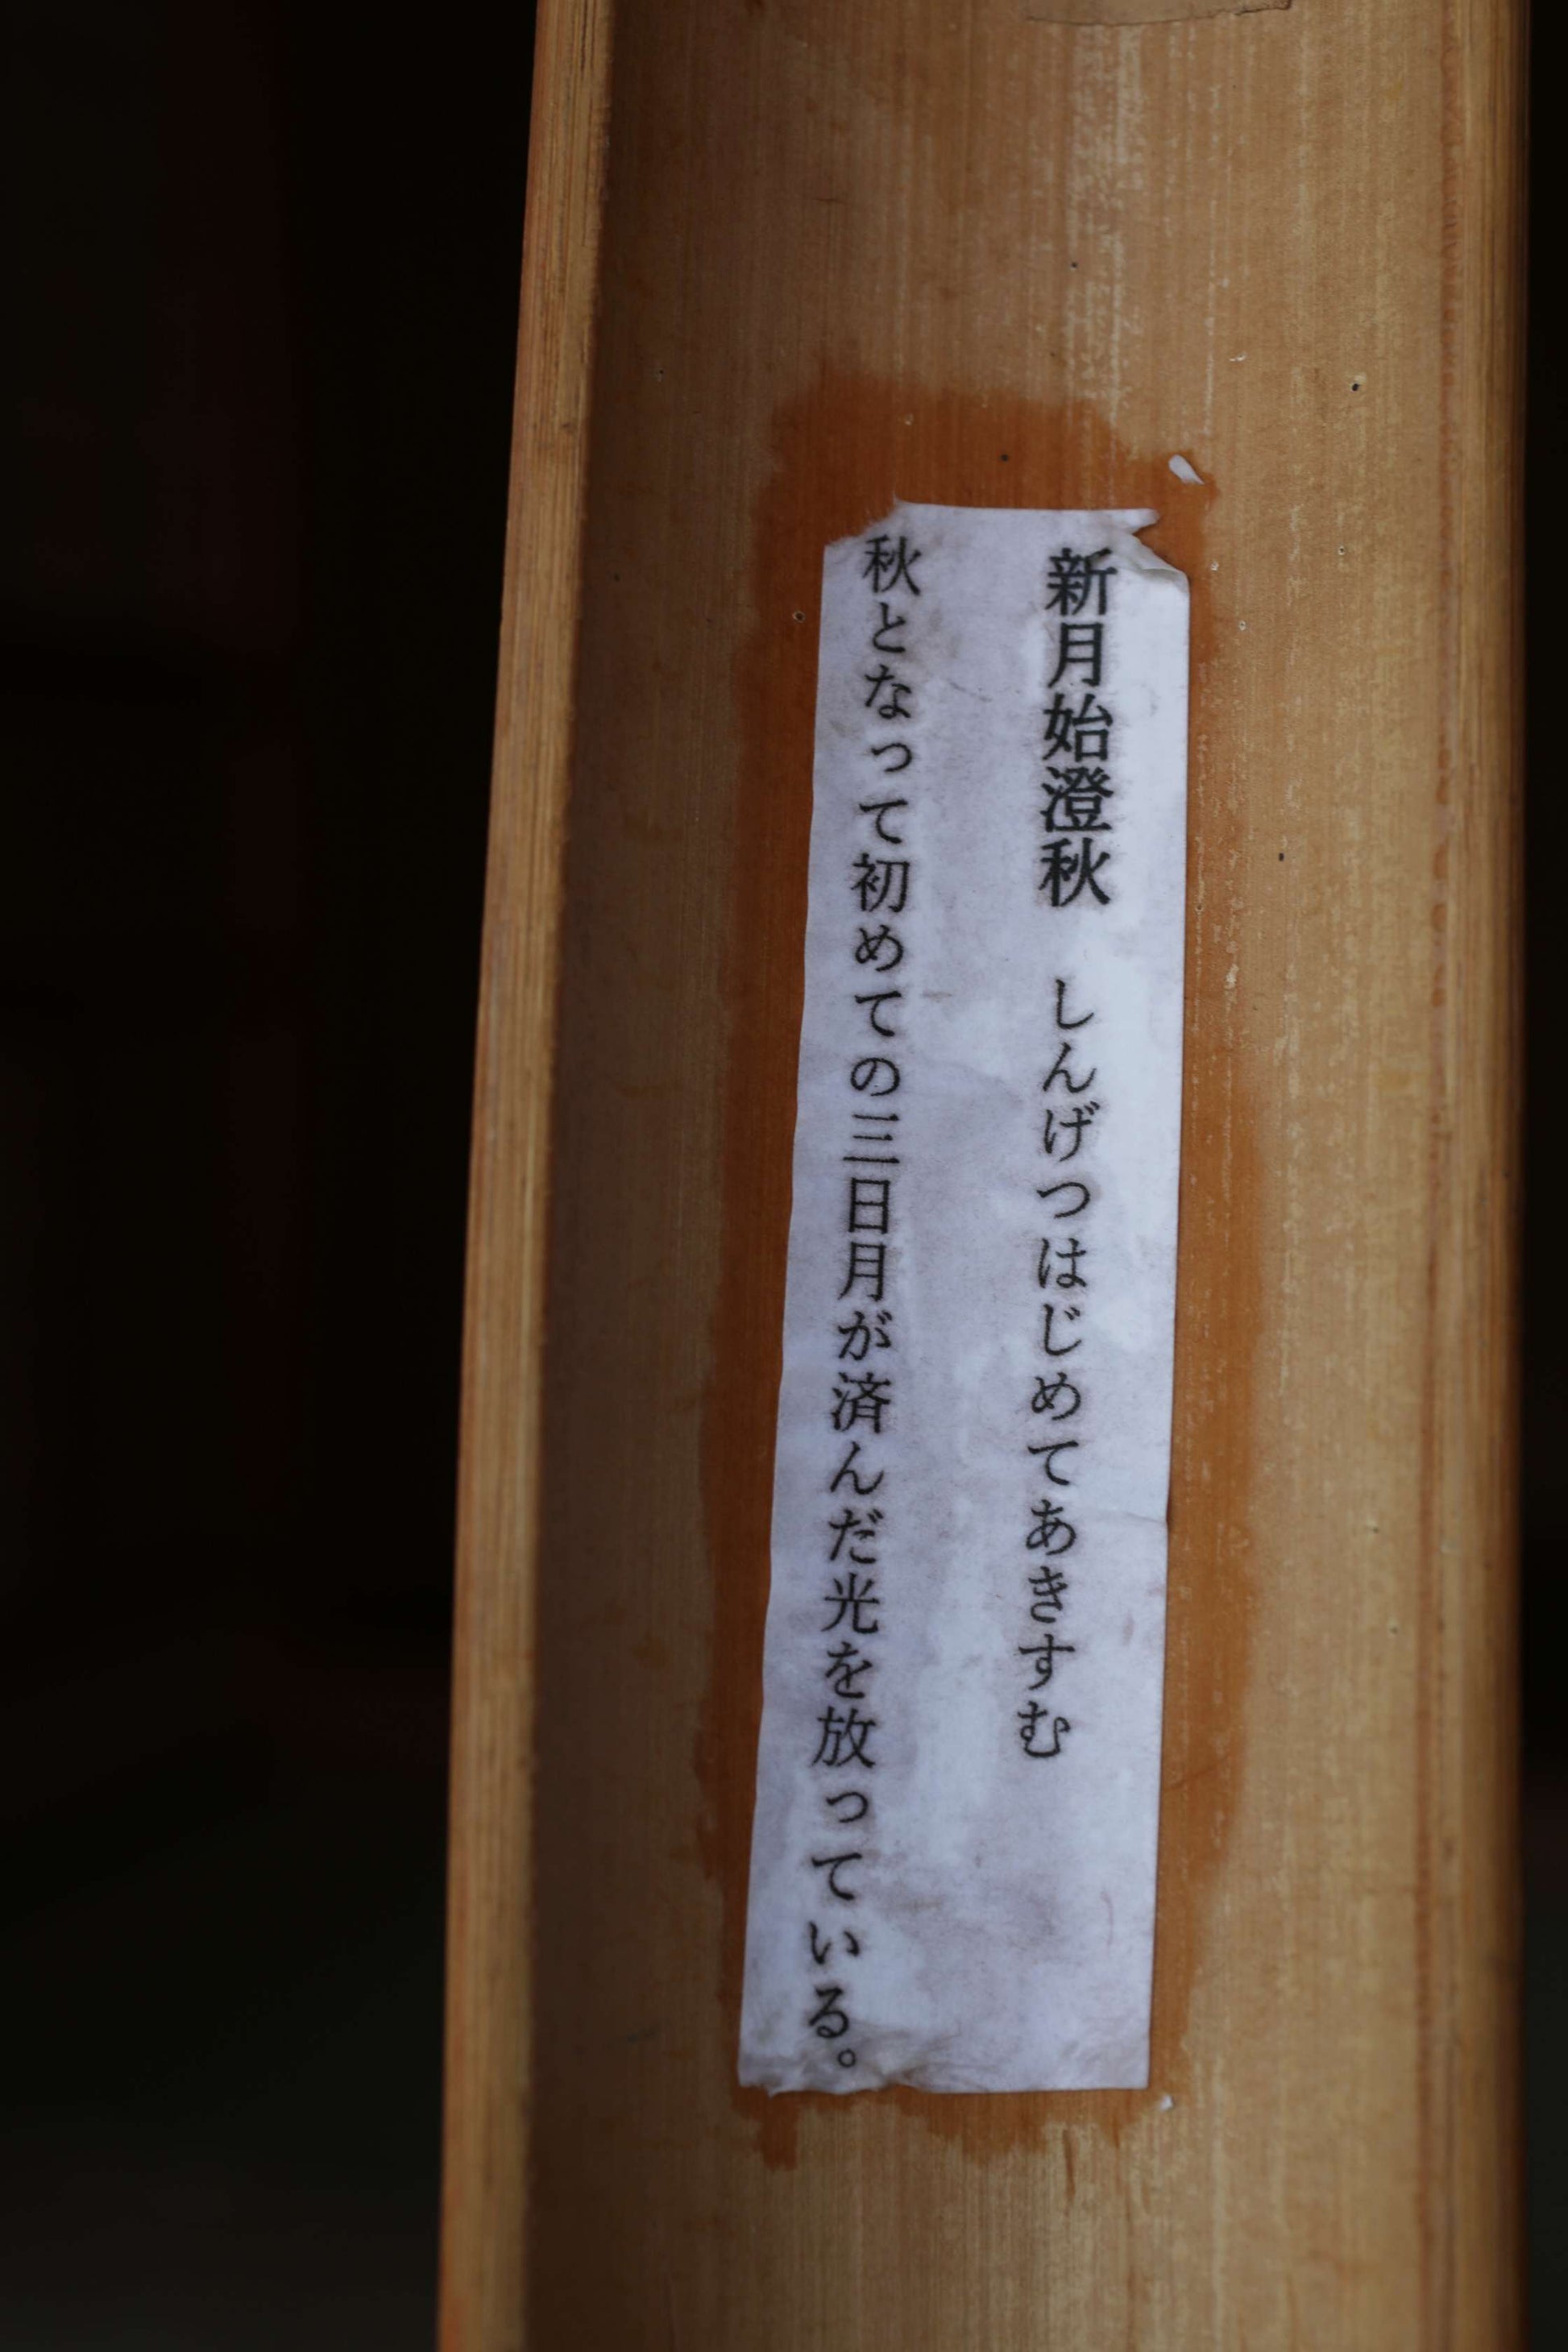 新月始澄秋　しんげつはじめてあきすむ
秋となって初めての三日月が済んだ光を放っている。